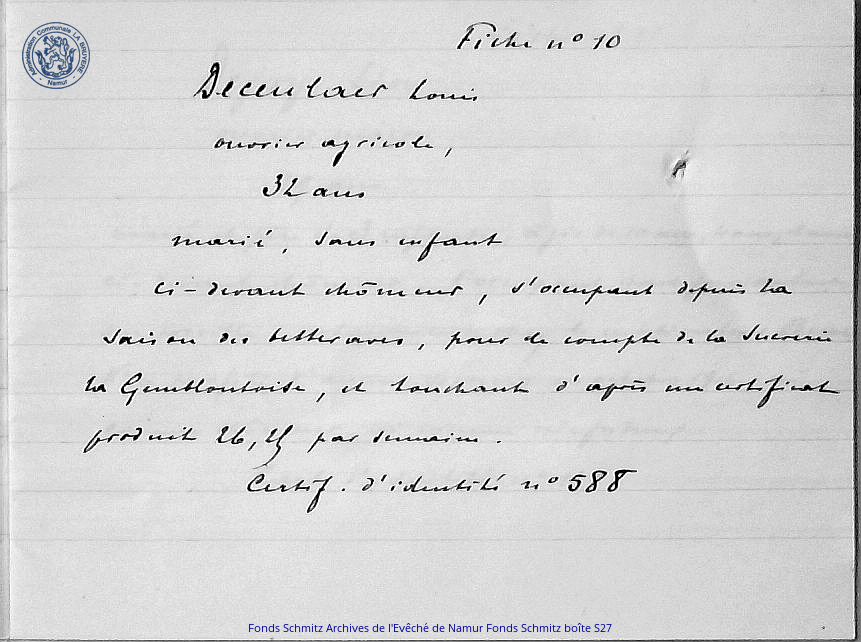 Administration Communale LA BRUYERE - Namur -
Fiche n° 10
Deceulaer Louis
ouvrier agricole,
32 ans
marié, sans enfant
ci-devant chômeur, s'occupant depuis la
saison des betteraves, pour le compte de la Sucrerie
la Gembloutoise, et touchant d'après un certificat
produit 26,25 par semaine.
Certif. d'identité n° 588
Fonds Schmitz Archives de l'Evêché de Namur Fonds Schmitz boîte S27